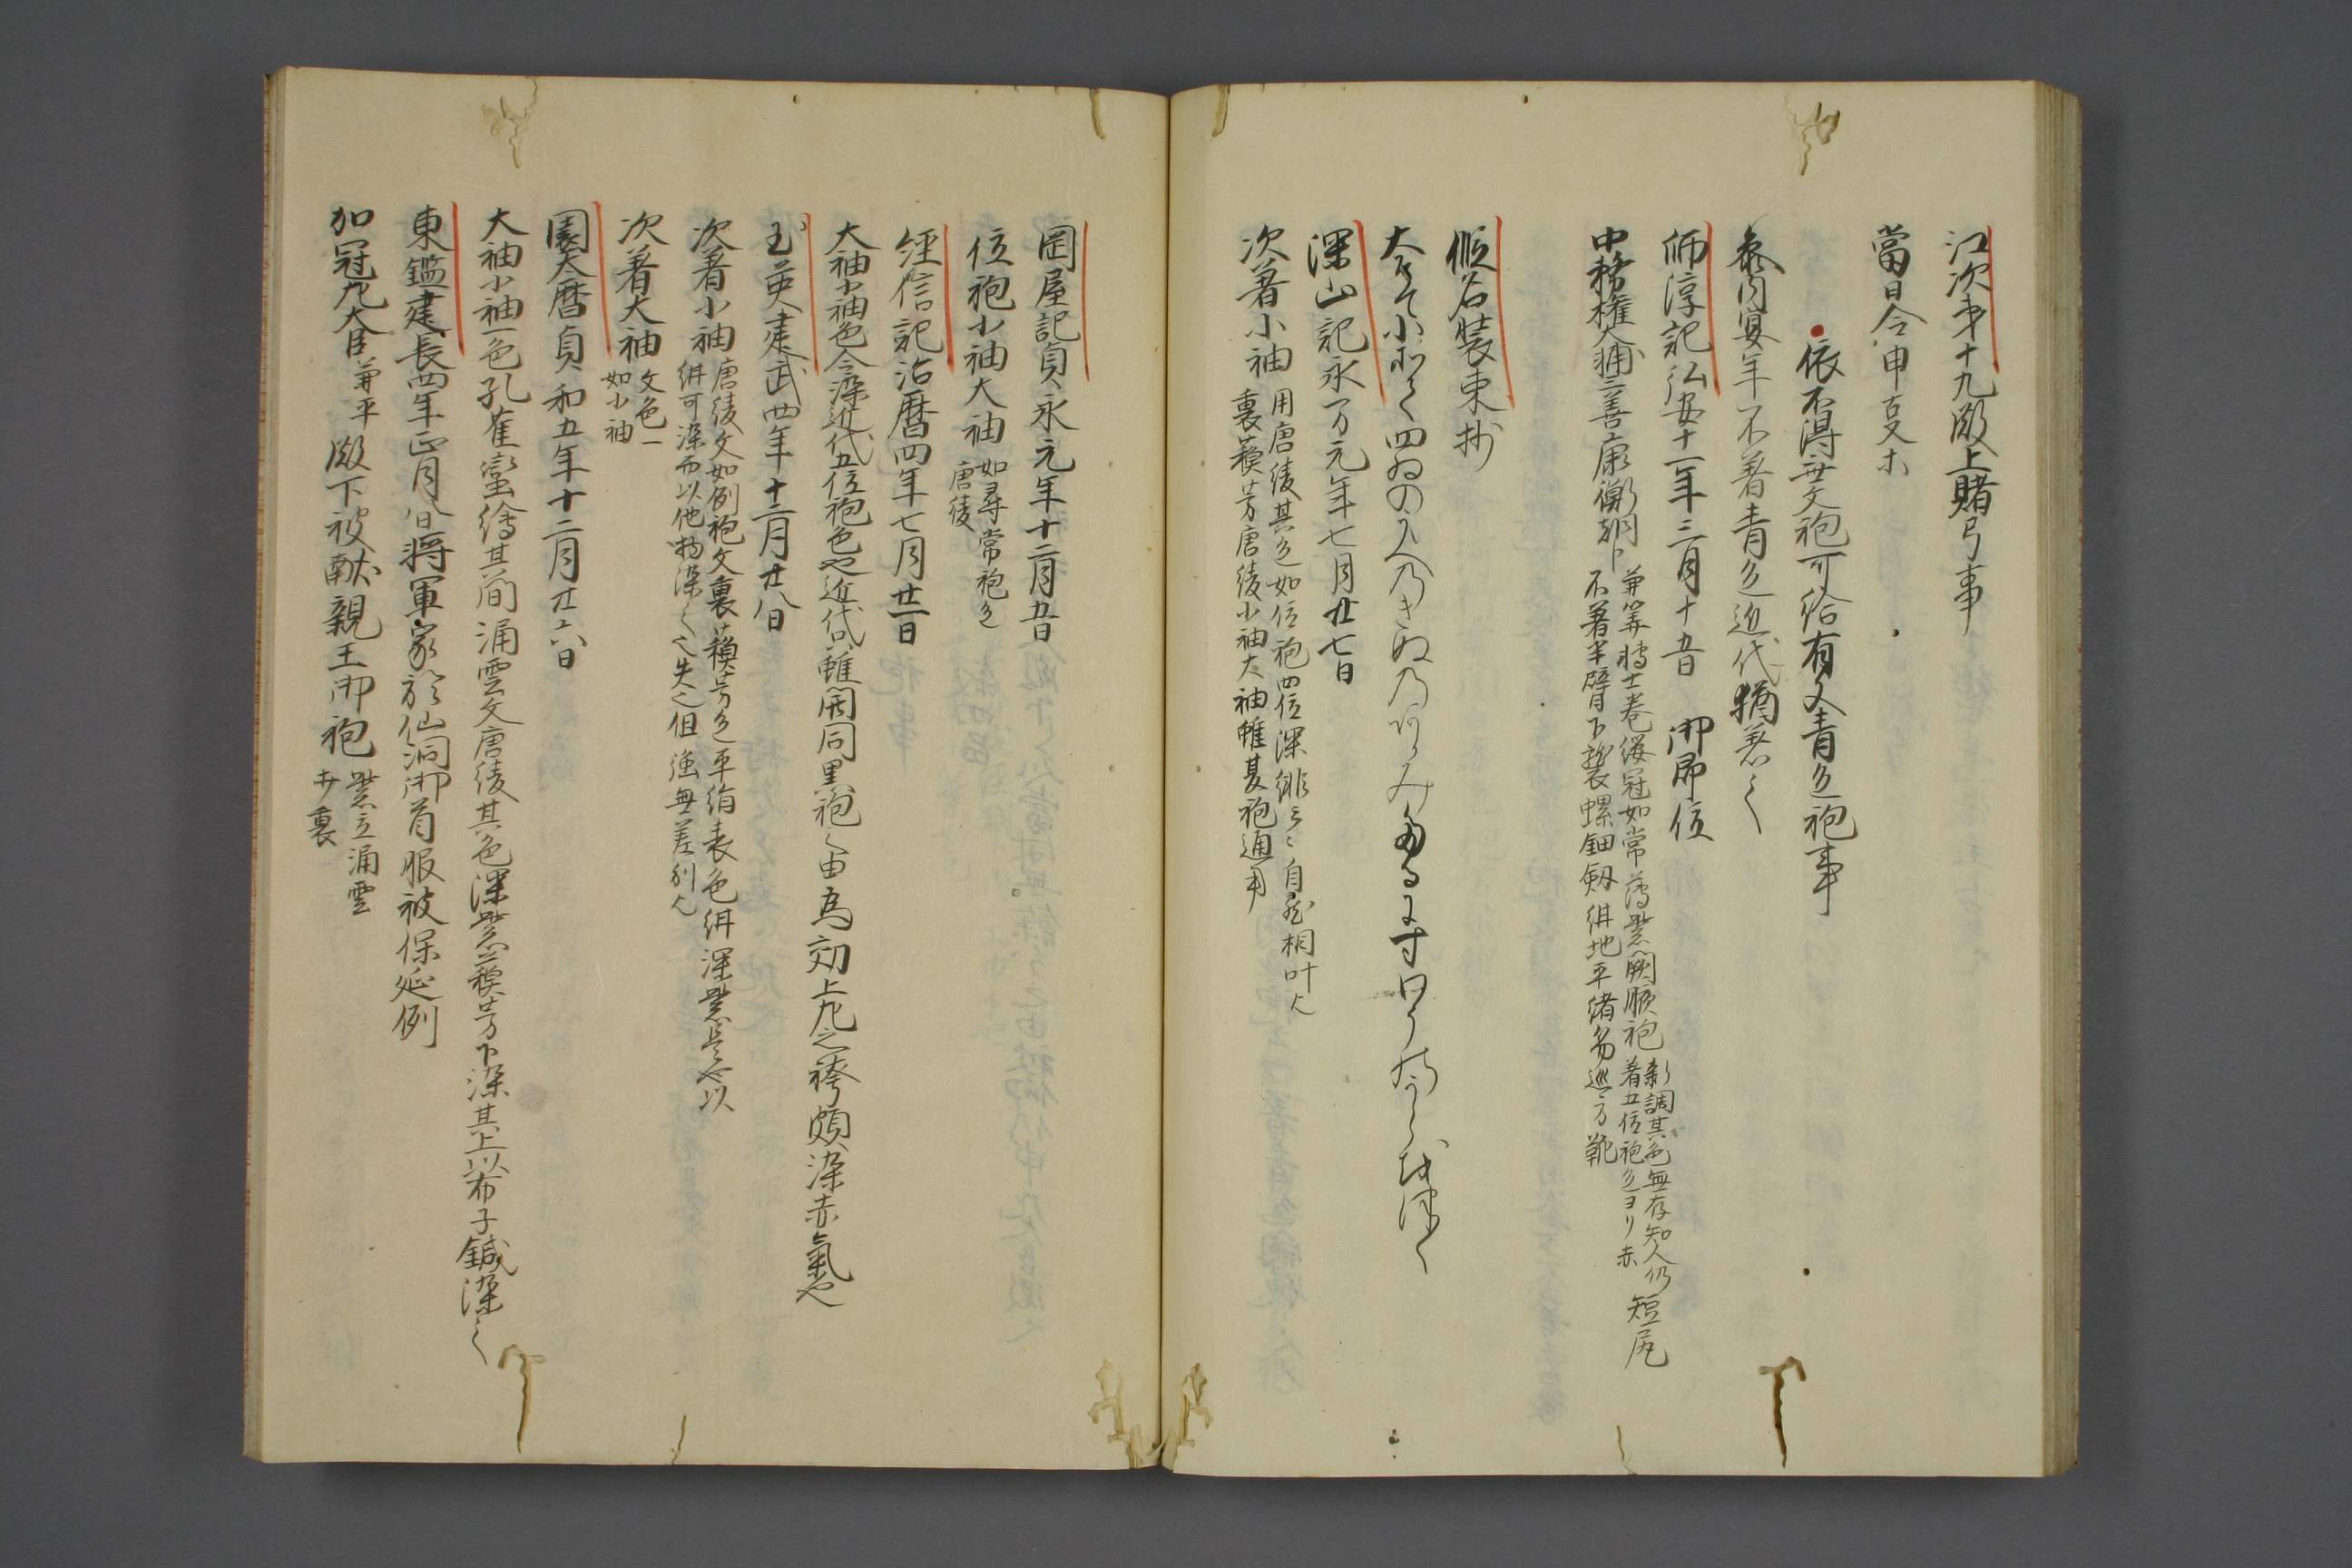 江次第十九殿上賭弓事
當日令申交名
依不得無文袍可給有文青色袍事
参内宴年不著青色近代猶著之
師淳記弘安十一年三月十五日 御即位
中務権大輔三善康衡朝臣
兼筭博士巻纓冠如常薄紫闕腋袍
新調其色無存知人仍
着五位袍色ヨリ赤
短尻
不著半臂下襲螺鈿剱紺地平緒 巡方靴
假名装束抄
大そて小そて四ゐの人のきぬの
深山記永万元年七月廿七日
次著小袖
用唐綾其色如位袍四位深緋云々自然相叶
裏蘇芳唐綾小袖大袖雖夏袍通用
岡屋記貞永元年十二月五日
位袍小袖大袖
如尋常袍色
唐綾
経信記治暦四年七月廿一日
大袖小袖色令染近代五位袍色也近代雖関同黒袍之由為効上九之袴頗染赤氣也
玉英建武四年十二月廿八日
次著小袖
唐綾文如例袍文裏蘇芳色平絹表色紺深紫是也以
紺可染而以他物染之失之但強無差別
次著大袖
文色一
如小袖
園太暦貞和五年十二月廿六日
大袖小袖一色孔雀蛮繪其間涌雲文唐綾其色深紫蘇芳下染其上以布子鍼染之
東鑑建長四年正月八日将軍家於仙洞御首服被保延例
加冠左大臣
兼平
殿下被献親王御袍
紫立涌雲
廾裏